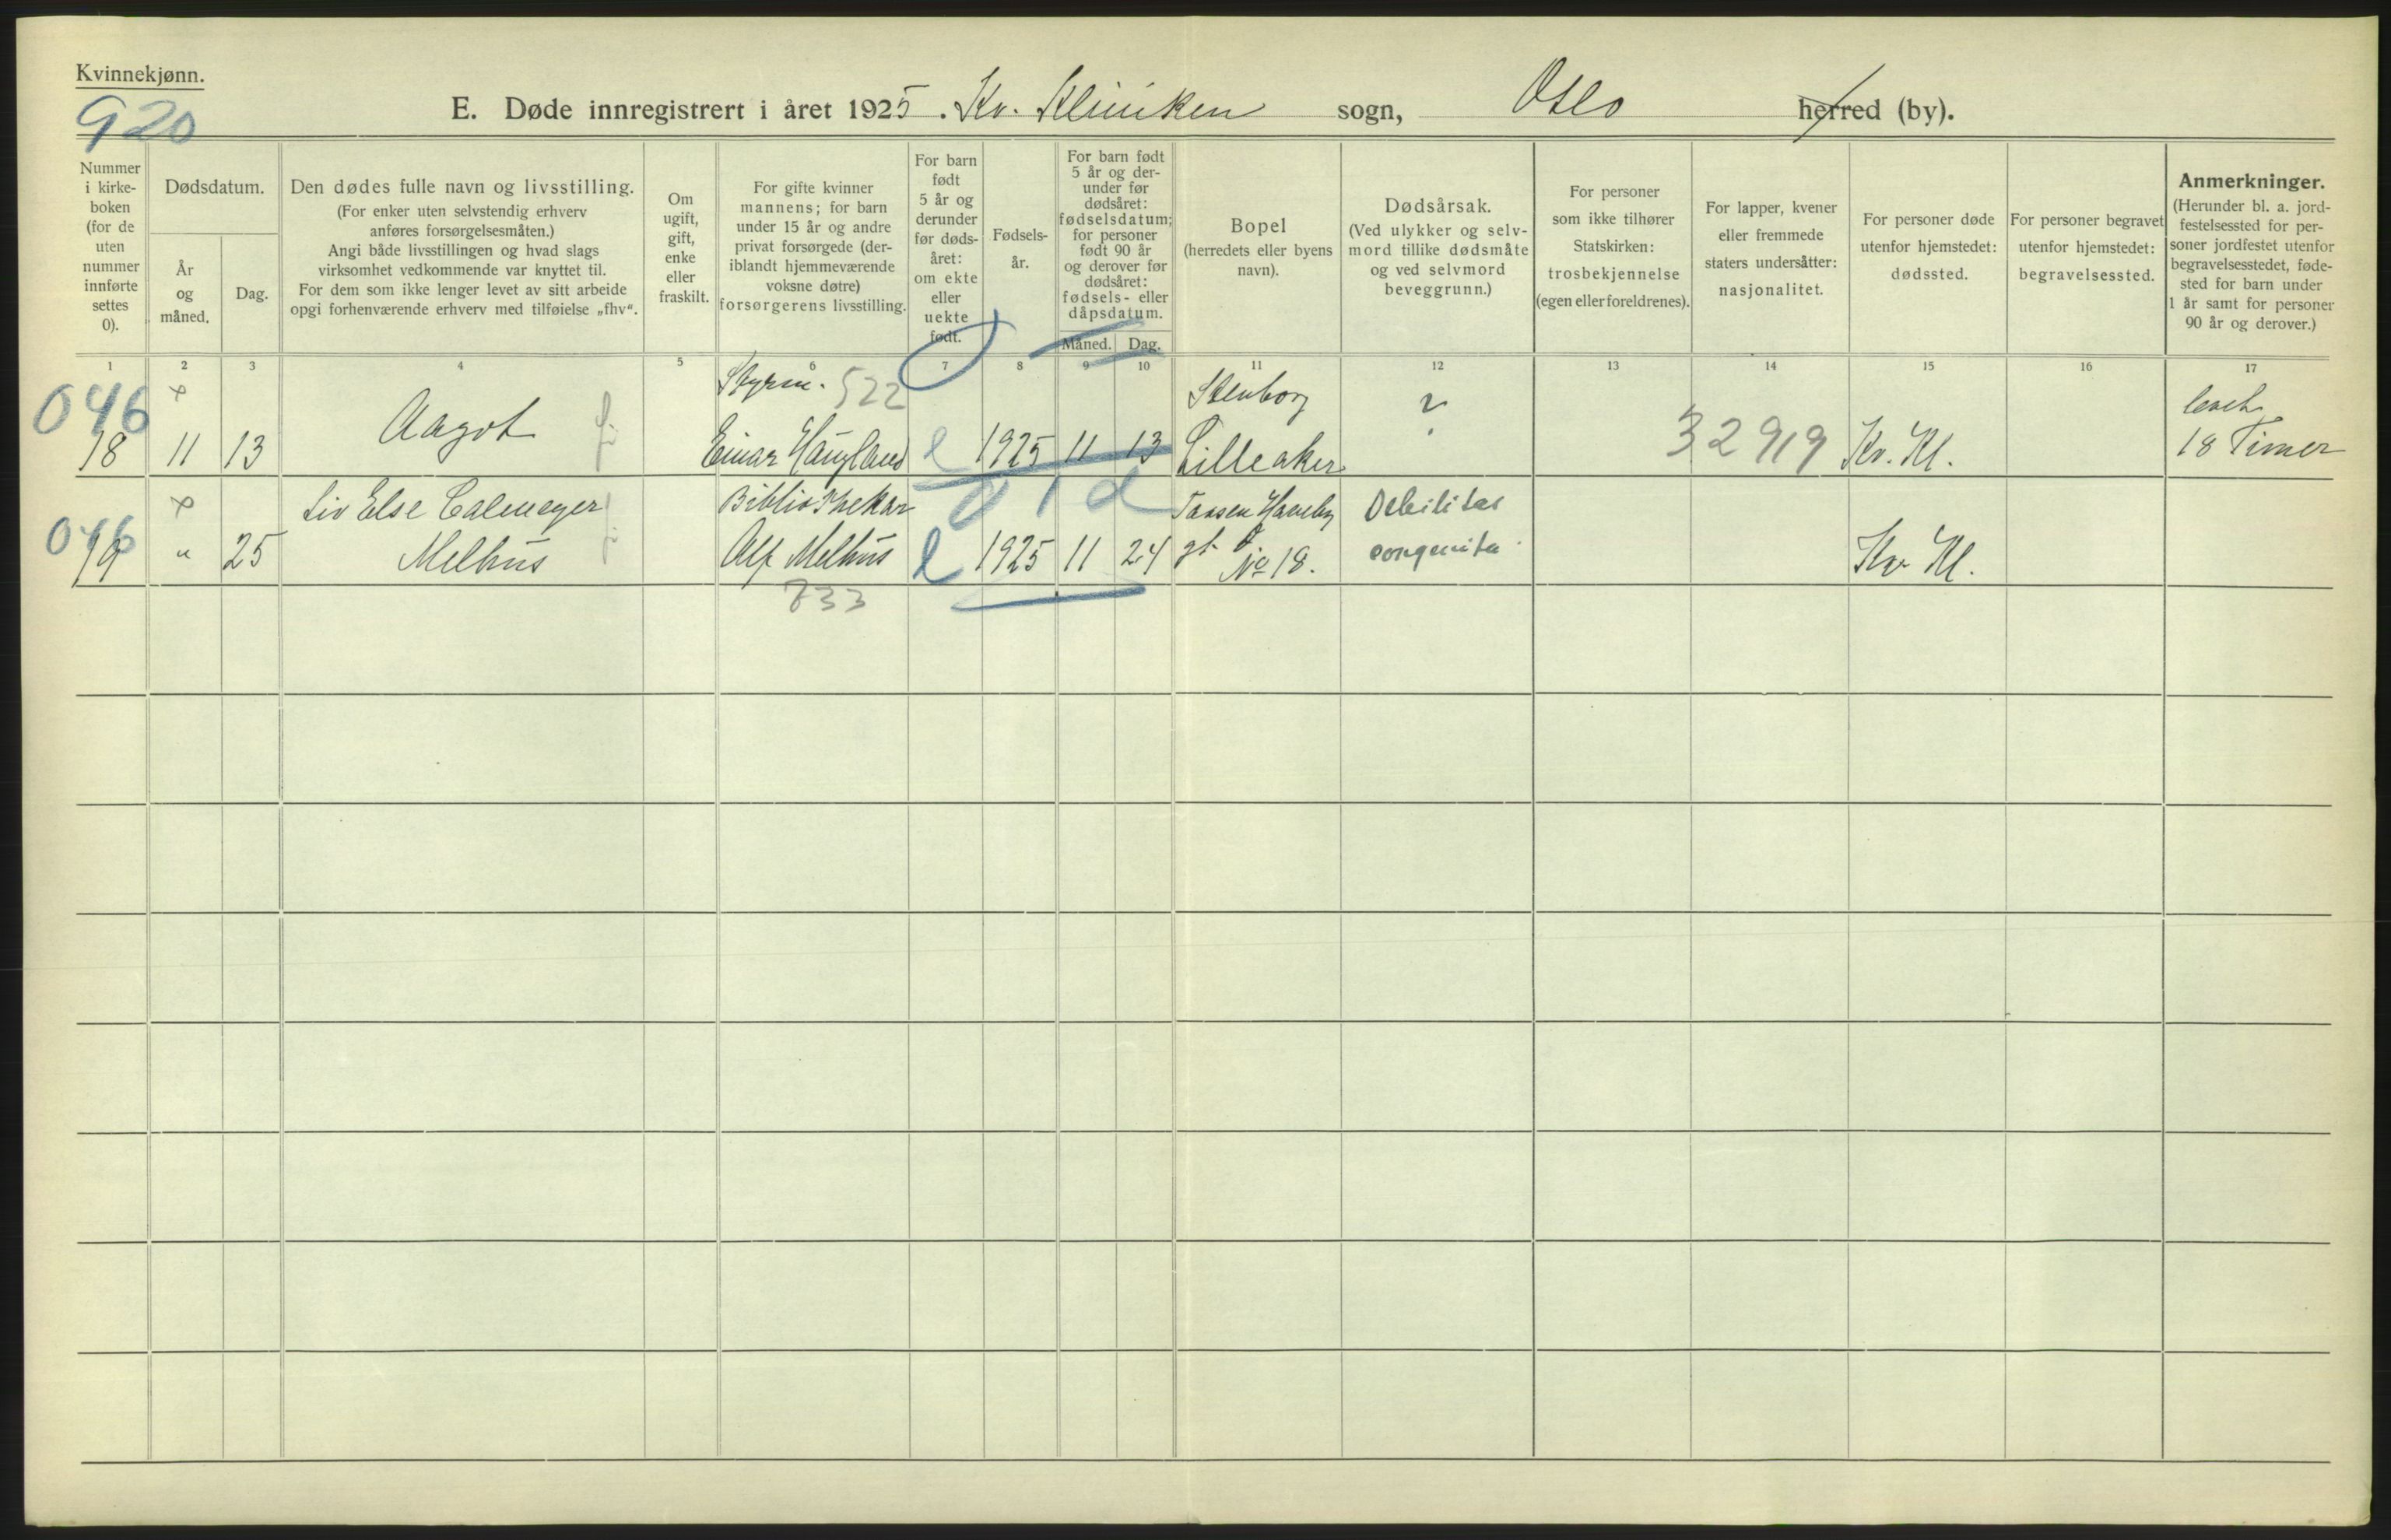 Kvinnekjønn.
920
E. Døde innregistrert i året 1925. Kv. Kliniken sogn, Oslo herred (by).
Nummer i kirke- boken (for de uten nummer innførte settes 0).
Dødsdatum.
År og måned.
Dag.
Den dødes fulle navn og livsstilling.
(For enker uten selvstendig erhverv
anføres forsørgelsesmåten.)
Angi både livsstillingen og hvad slags
virksomhet vedkommende var knyttet til.
For dem som ikke lenger levet av sitt arbeide
opgi forhenværende erhverv med tilføielse „fhv“.
Om ugift, gift, enke eller fraskilt.
For gifte kvinner
mannens; for barn
under 15 år og andre
privat forsørgede (der-
iblandt hjemmeværende
voksne døtre)
forsørgerens livsstilling.
For barn født 5 år og derunder før døds- året: om ekte eller uekte født.
Fødsels- år.
For barn født
5 år og der-
under før
dødsåret:
fødselsdatum;
for personer
født 90 år
og derover før
dødsåret:
fødsels- eller
dåpsdatum.
Måned. Dag.
Bopel
(herredets eller byens
navn).
Dødsårsak.
(Ved ulykker og selv-
mord tillike dødsmåte
og ved selvmord
beveggrunn.)
For personer
som ikke tilhører
Statskirken:
trosbekjennelse
(egen eller foreldrenes).
For lapper, kvener
eller fremmede
staters undersåtter:
nasjonalitet.
For personer døde
utenfor hjemstedet:
dødssted.
For personer begravet
utenfor hjemstedet:
begravelsessted.
Anmerkninger.
(Herunder bl. a. jord-
festelsessted for per-
soner jordfestet utenfor
begravelsesstedet, føde-
sted for barn under
1 år samt for personer
90 år og derover.)
1 2 3 4 5 6 7 8 9 10 11 12 13 14 15 16 17
046 Styrm. 522 Stenborg ? levet
18 11 13 Aagot Einar Haugland e 1925 11 13 Lilleaker 32919 Kv. Kl. 18 Timer
046 Liv Else Calmeyer Bibliothekar Taasen Haveby Debilitas
19 " 25 Melhus Alf Melhus e 1925 11 24 gt. No 18. congenita Kv. Kl.
733